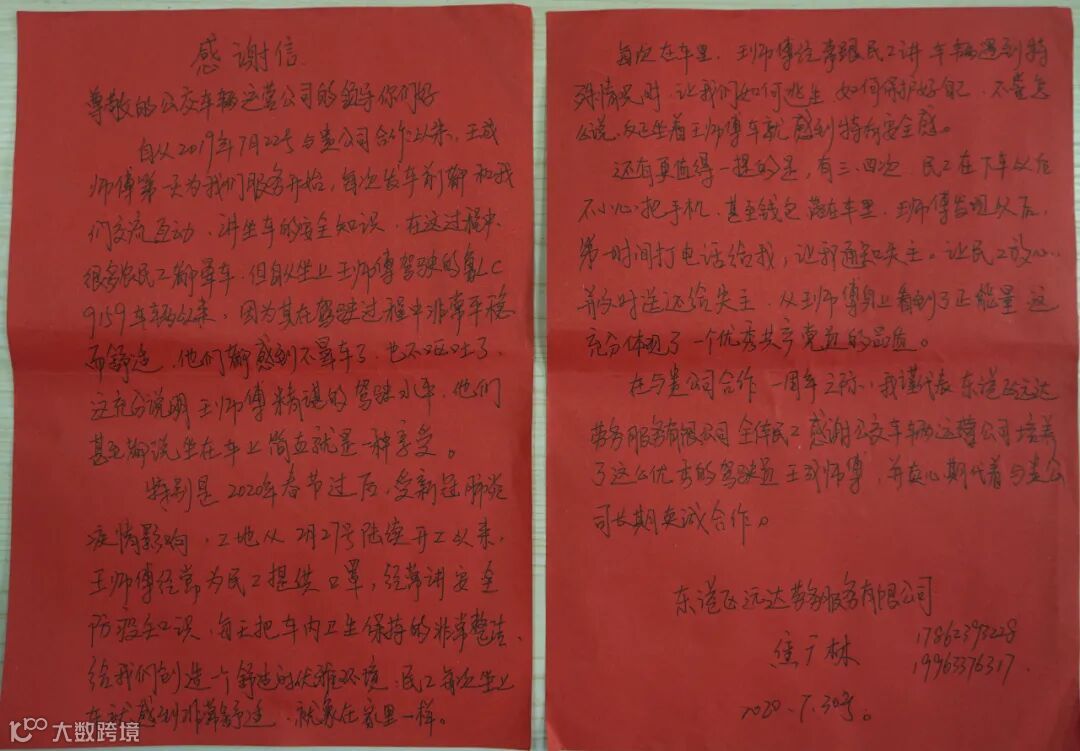 感谢信
尊敬的公交车辆运营公司的领导你们好
自从2019年7月22号与贵公司合作以来、王成
师傅第一天为我们服务开始,每次发车前都和我
们交流互动、讲坐车的安全知识、在这过程中
很多农民工都晕车、但自从坐上王师傅驾驶的鲁LC
9159车辆以来、因为其在驾驶过程中非常平稳
而舒适、他们都感到不晕车了、也不呕吐了、
这充分说明王师傅精谌的驾驶水平、他们
甚至都说坐在车上简直就是一种享受。
特别是2020年春节过后、受新冠肺炎
疫情影响、工地从2月27号陆续开工以来、
王师傅经常为民工提供口罩,经常讲安全
防疫知识、每天把车内卫生保持的非常整洁、
给我们创造一个舒适的优雅环境、民工每次坐上
车就感到非常舒适、就象在家里一样。
每次在车里、王师傅经常跟民工讲车辆遇到特
殊情况时、让我们如何逃生、如何保护好自己、不管怎
么说、反正坐着王师傅车就感到特有安全感。
还有更值得一提的是,有三、四次、民工在下车以后
不小心把手机、甚至钱包落在车里、王师傅发现以后、
第一时间打电话给我,让我通知失主。让民工放心、
并及时送还给失主、从王师傅身上看到了正能量、这
充分体现了一个优秀共产党员的品质。
在与贵公司合作一周年之际、我谨代表东港区远达
劳务服务有限公司全体民工感谢公交车辆运营公司培养
了这么优秀的驾驶员王成师傅、并真心期代着与贵公
司长期真诚合作。
东港区远达劳务服务有限公司
焦广林 17862393228
19963376317.
2020.7.30号。
大数跨境